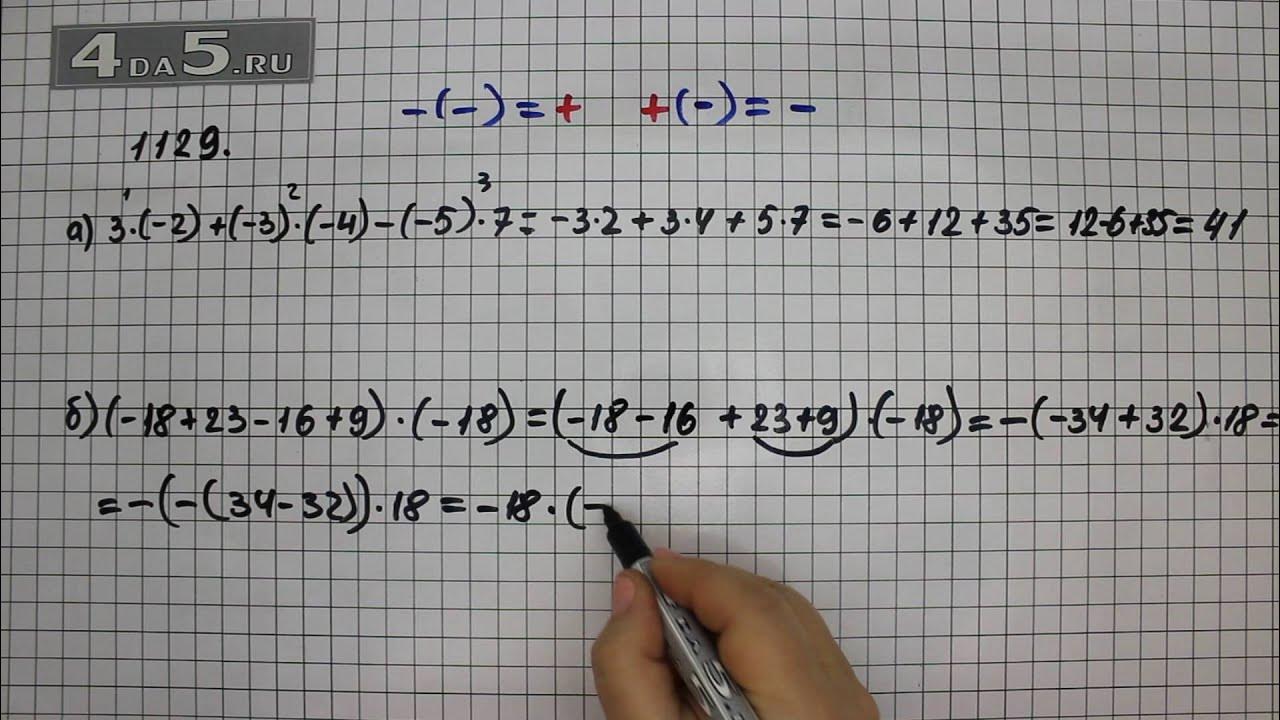 4DA5.RU
-(-)=+ +(-)= -
1129.
1 2 3
а) 3·(-2)+(-3)·(-4)-(-5)·7= -3·2+3·4+5·7=-6+12+35= 12-6+35=41
б)(-18+23-16+9)·(-18)=(-18-16 +23+9)·(-18)=-(-34+32)·18=
=-(-(34-32))·18=-18·(-